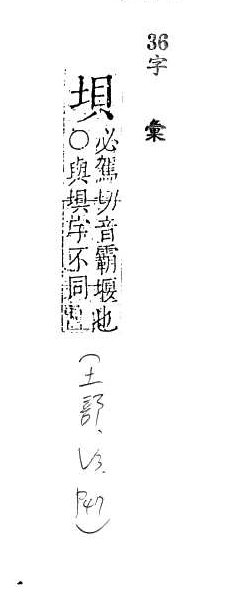 36字彙
垻
必駕切音霸堰也
○與埧字不同
(土部、V3.
P47)